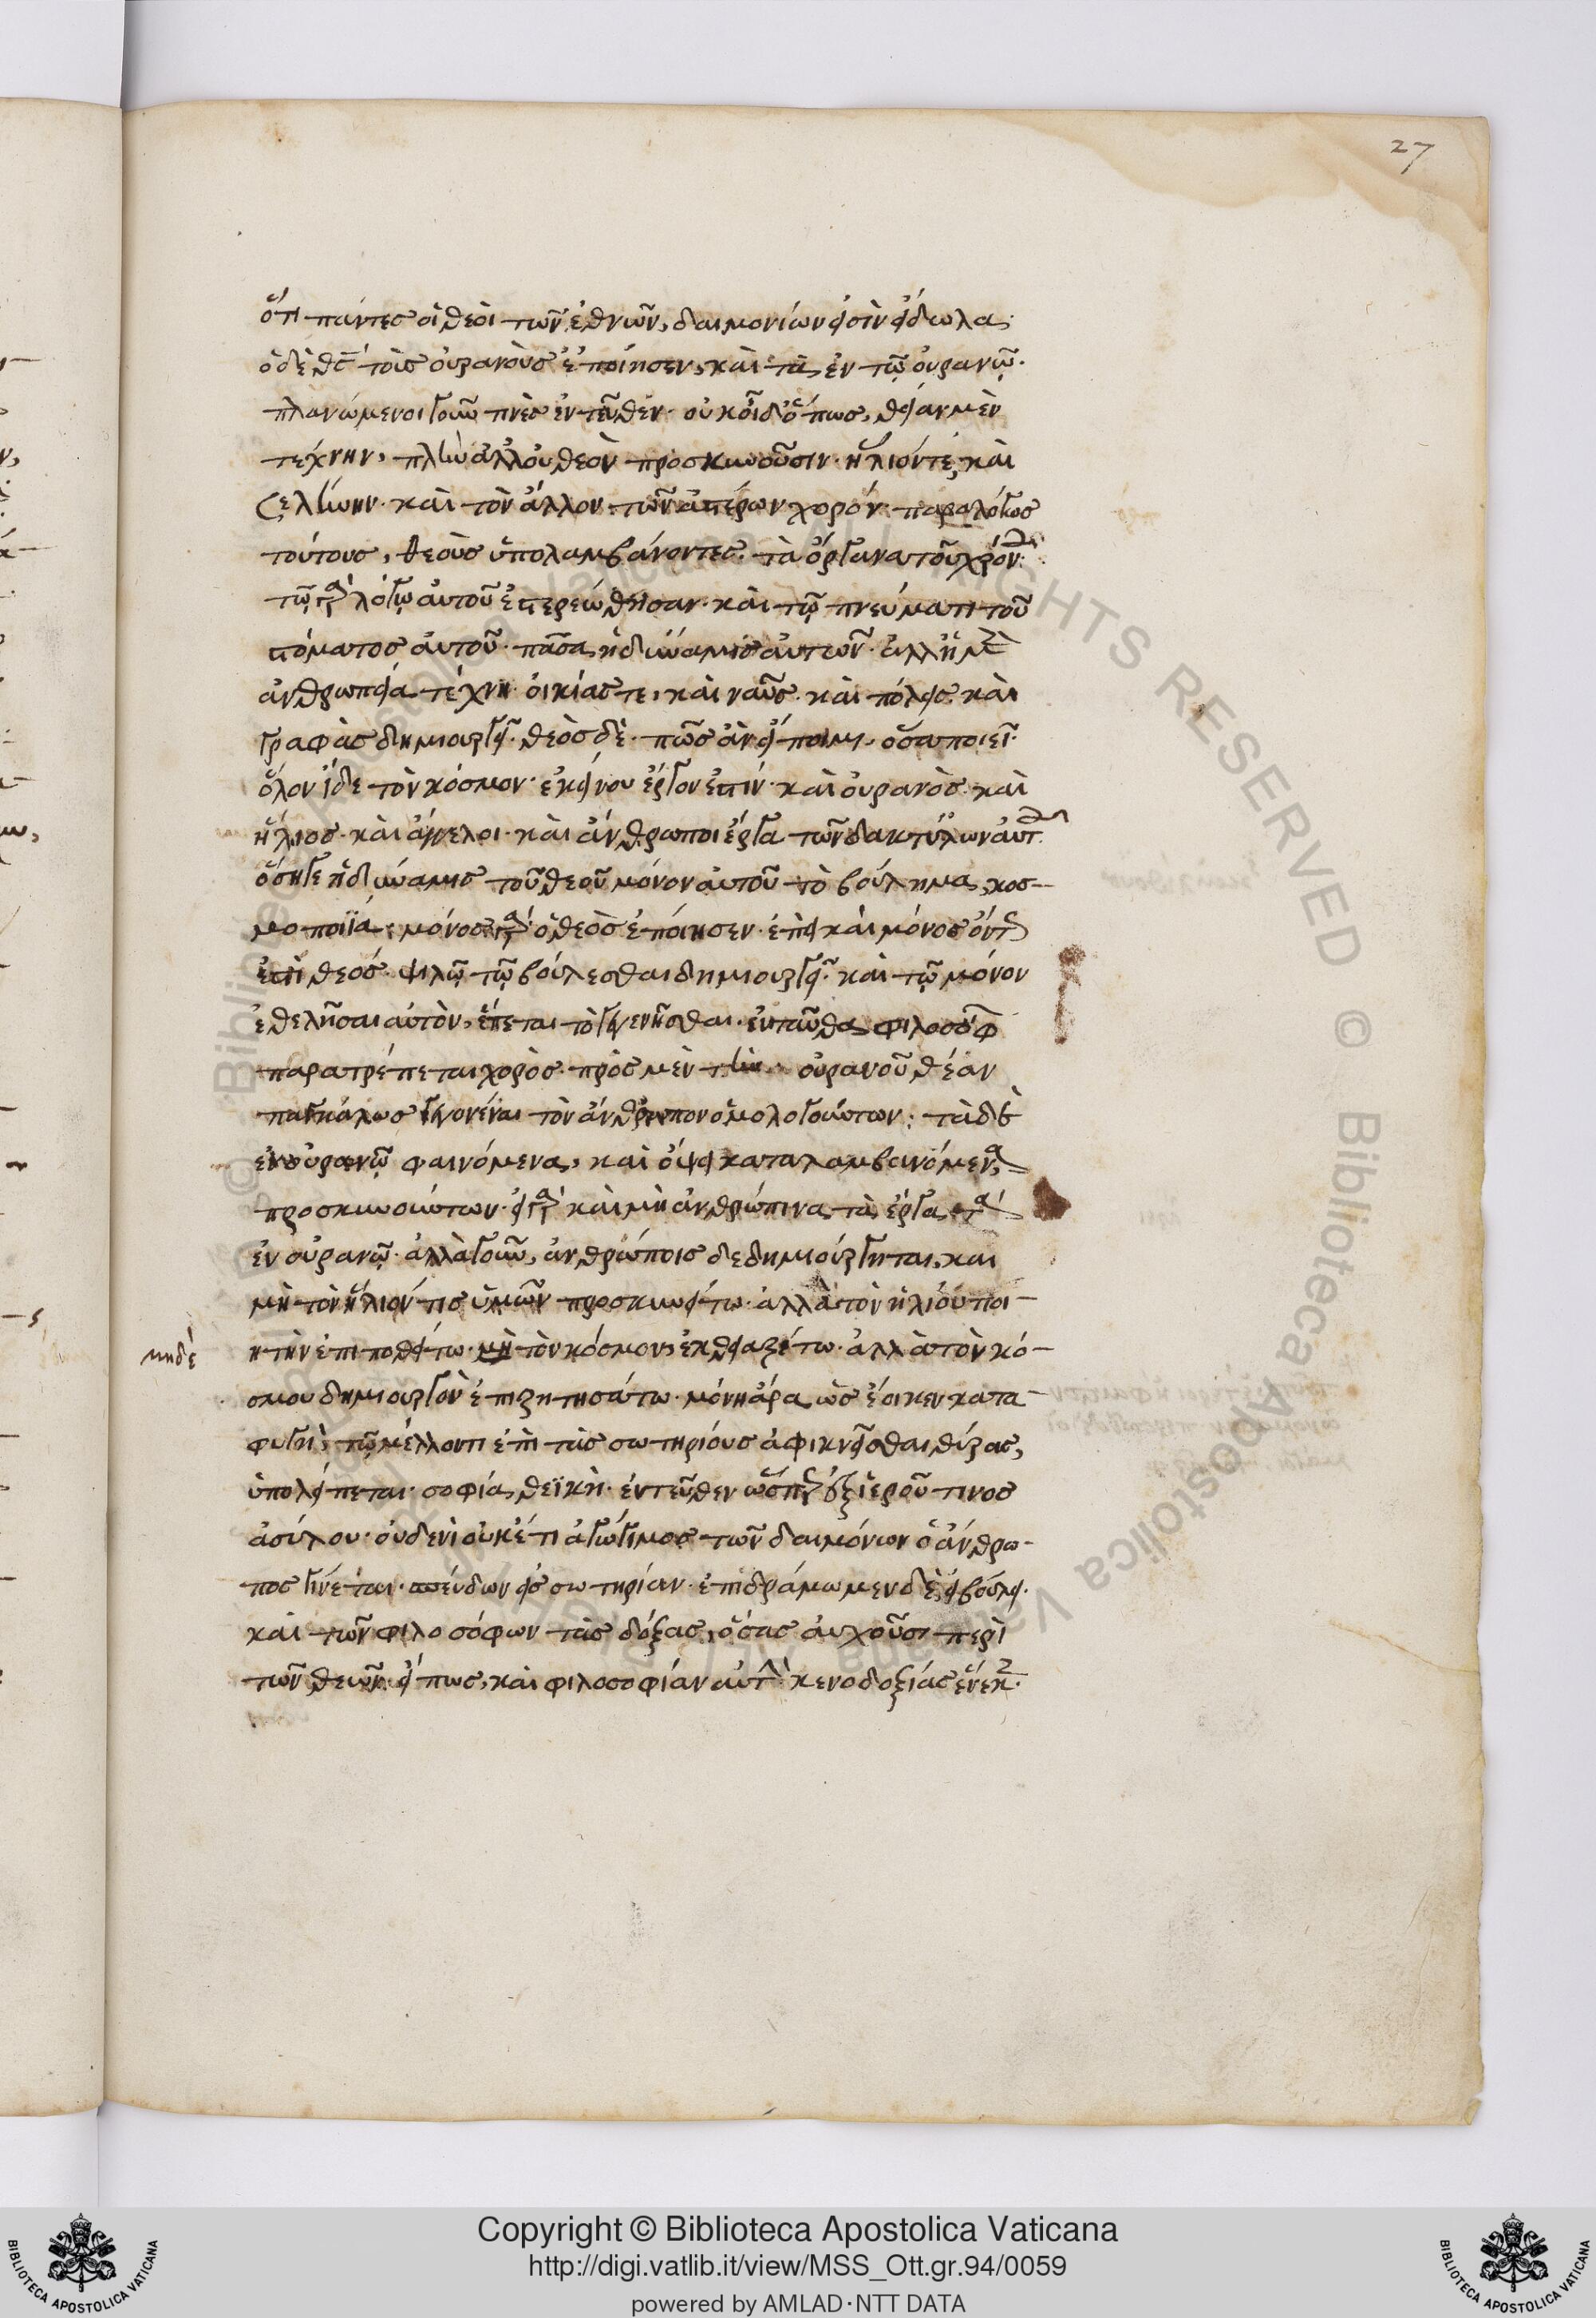 27
ὅτι πάντες οἱ θεοὶ τῶν ἐθνῶν, δαιμονίων εἰσὶν εἴδωλα·
ὁ δὲ θς τοὺς οὐρανοὺς ἐποίησεν, καὶ τὰ ἐν τῷ οὐρανῷ·
πλανώμενοι γοῦν τινὲς ἐντεῦθεν· οὐκ οἶδ' ὅπως, θείαν μὲν
τέχνην, πλὴν ἀλλ' οὐ θεὸν προσκυνοῦσιν· ἥλιόν τε, καὶ
σελήνην· καὶ τὸν ἄλλον τῶν ἀστέρων χορόν· παραλόγως
τούτους, θεοὺς ὑπολαμβάνοντες· τὰ ὄργανα τοῦ χρόν
τῷ γὰρ λόγῳ αὐτοῦ ἐστερεώθησαν· καὶ τῷ πνεύματι τοῦ
στόματος αὐτοῦ· πᾶσα ἡ δύναμις αὐτῶν· ἀλλ' ἡ μὲν
ἀνθρωπεία τέχνη· οἰκίας τε, καὶ ναῦς· καὶ πόλεις· καὶ
γραφὰς δημιουργεῖ· θεὸς δὲ· πῶς ἂν εἴποιμι, ὅσα ποιεῖ·
ὅλον ἴδε τὸν κόσμον· ἐκείνου ἔργον ἐστίν· καὶ οὐρανὸς· καὶ
ἥλιος· καὶ ἄγγελοι· καὶ ἄνθρωποι ἔργα τῶν δακτύλων αὐτ
ὅση γε ἡ δύναμις τοῦ θεοῦ μόνον αὐτοῦ τὸ βούλημα, κοσ-
μοποιΐα· μόνος γὰρ ὁ θεὸς ἐποίησεν· ἐπεὶ καὶ μόνος ὄντως
ἐστὶ θεός· ψιλῷ τῷ βούλεσθαι δημιουργεῖ· καὶ τῷ μόνον
ἐθελῆσαι αὐτὸν, ἕπεται τὸ γεγενῆσθαι· ἐνταῦθα φιλοσόφ
παρατρέπεται χορὸς· πρὸς μὲν τὴν οὐρανοῦ θέαν
παγκάλως γεγονέναι τὸν ἄνθρωπον ὁμολογούντων· τὰ δὲ
ἐν οὐρανῷ φαινόμενα, καὶ ὄψει καταλαμβανόμενα
προσκυνούντων· εἰ γὰρ καὶ μὴ ἀνθρώπινα τὰ ἔργα τὰ
ἐν οὐρανῷ· ἀλλὰ γοῦν, ἀνθρώποις δεδημιούργηται, καὶ
μὴ τὸν ἥλιόν τις ὑμῶν προσκυνείτω· ἀλλὰ τὸν ἡλίου ποι-
μηδὲ
ητὴν ἐπιποθείτω· μὴ τὸν κόσμον, ἐκθειαζέτω· ἀλλὰ τὸν κό-
σμου δημιουργὸν ἐπιζητησάτω· μόνη ἄρα ὡς ἔοικεν κατα-
φυγὴ, τῷ μέλλοντι ἐπὶ τὰς σωτηρίους ἀφικνεῖσθαι θύρας,
ὑπολείπεται· σοφία θεϊκὴ· ἐντεῦθεν ὥσπερ ἐξ ἱεροῦ τινος
ἀσύλου· οὐδενὶ οὐκέτι ἀγώγιμος τῶν δαιμόνων ὁ ἄνθρω-
πος γίνεται· σπεύδων εἰς σωτηρίαν· ἐπιδράμωμεν δὲ, εἰ βούλει·
καὶ τῶν φιλοσόφων τὰς δόξας, ὅσας αὐχοῦσι περὶ
τῶν θεῶν, εἴ πως, καὶ φιλοσοφίαν αὐτὴν κενοδοξίας ἕνεκ
Copyright © Biblioteca Apostolica Vaticana
http://digi.vatlib.it/view/MSS_Ott.gr.94/0059
powered by AMLAD·NTT DATA
BIBLIOTECA APOSTOLICA VATICANA
BIBLIOTECA APOSTOLICA VATICANA